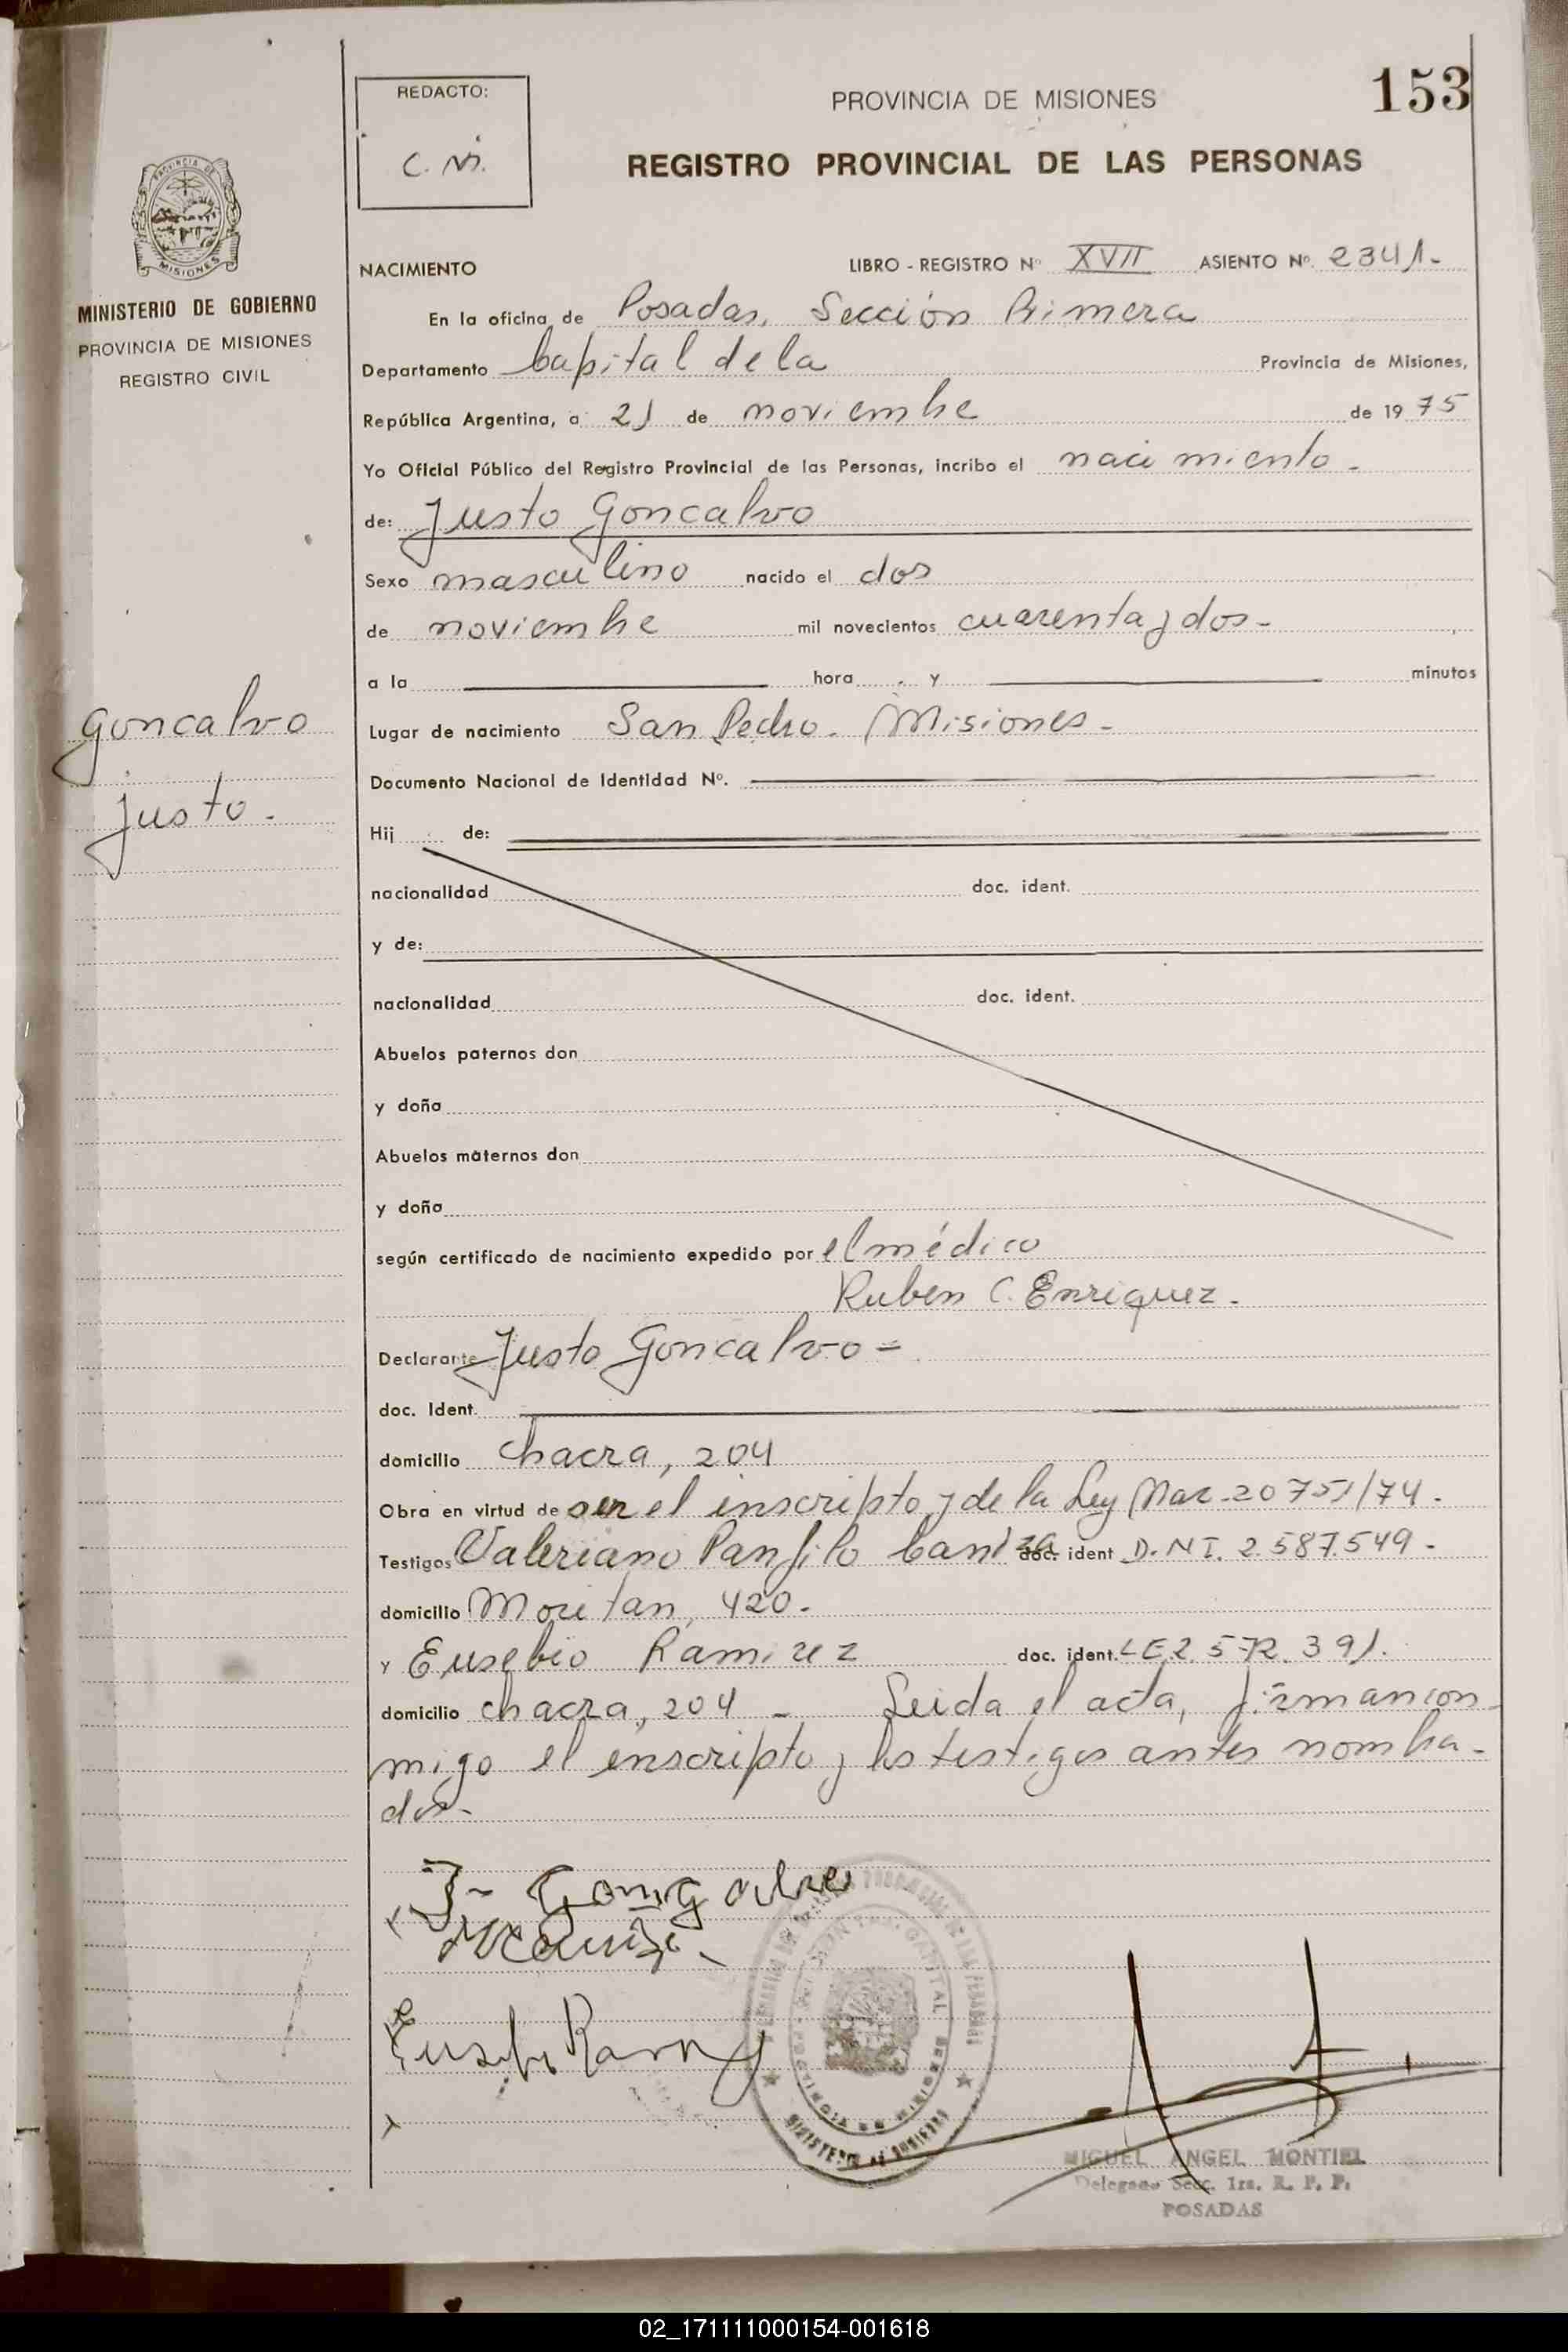 153
REDACTO:
C. M.
PROVINCIA DE MISIONES
REGISTRO PROVINCIAL DE LAS PERSONAS
MISIONES
MINISTERIO DE GOBIERNO
PROVINCIA DE MISIONES
REGISTRO CIVIL
NACIMIENTO LIBRO - REGISTRO Nº XVII ASIENTO Nº. 2341-
En la oficina de Posadas, Sección Primera
Departamento Capital de la Provincia de Misiones,
República Argentina, a 21 de noviembre de 1975
Yo Oficial Público del Registro Provincial de las Personas, incribo el nacimiento -
de: Justo Goncalvo
Sexo masculino nacido el dos
de noviembre mil novecientos cuarenta y dos -
a la hora y minutos
Goncalvo
Justo -
Lugar de nacimiento San Pedro - Misiones -
Documento Nacional de Identidad Nº.
Hij de:
nacionalidad doc. ident.
y de:
nacionalidad doc. ident.
Abuelos paternos don
y doña
Abuelos maternos don
y doña
según certificado de nacimiento expedido por el médico
Ruben C. Enriquez -
Declarante Justo Goncalvo =
doc. Ident.
domicilio chacra, 204
Obra en virtud de ser el inscripto y de la Ley Nac. 20751/74 -
Testigos Valeriano Panfilo Caniza doc. ident D.N.I. 2.587.549 -
domicilio Moritan, 420 -
y Eusebio Ramirez doc. ident. LE 2.572.391.
domicilio chacra, 204 - Leida el acta, firman con
migo el inscripto y los testigos antes nombra-
dos -
J- Gonçalve
Eusebio Ramirez
MINISTERIO DE GOBIERNO
MIGUEL ANGEL MONTIEL
Delegado Secc. 1ra. R. P. P.
POSADAS
02_171111000154-001618